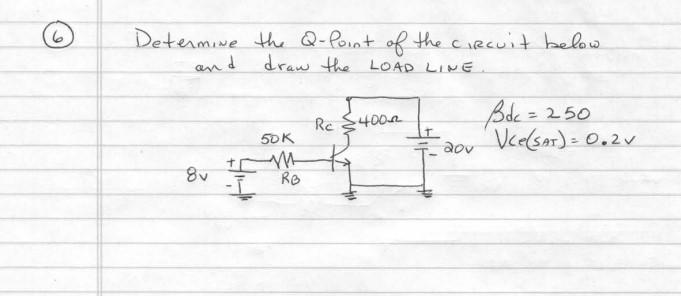 6
Determine the Q-Point of the circuit below
and draw the LOAD LINE.
Rc 400Ω
βdc = 250
50K
20v
Vce(SAT) = 0.2v
8v
RB